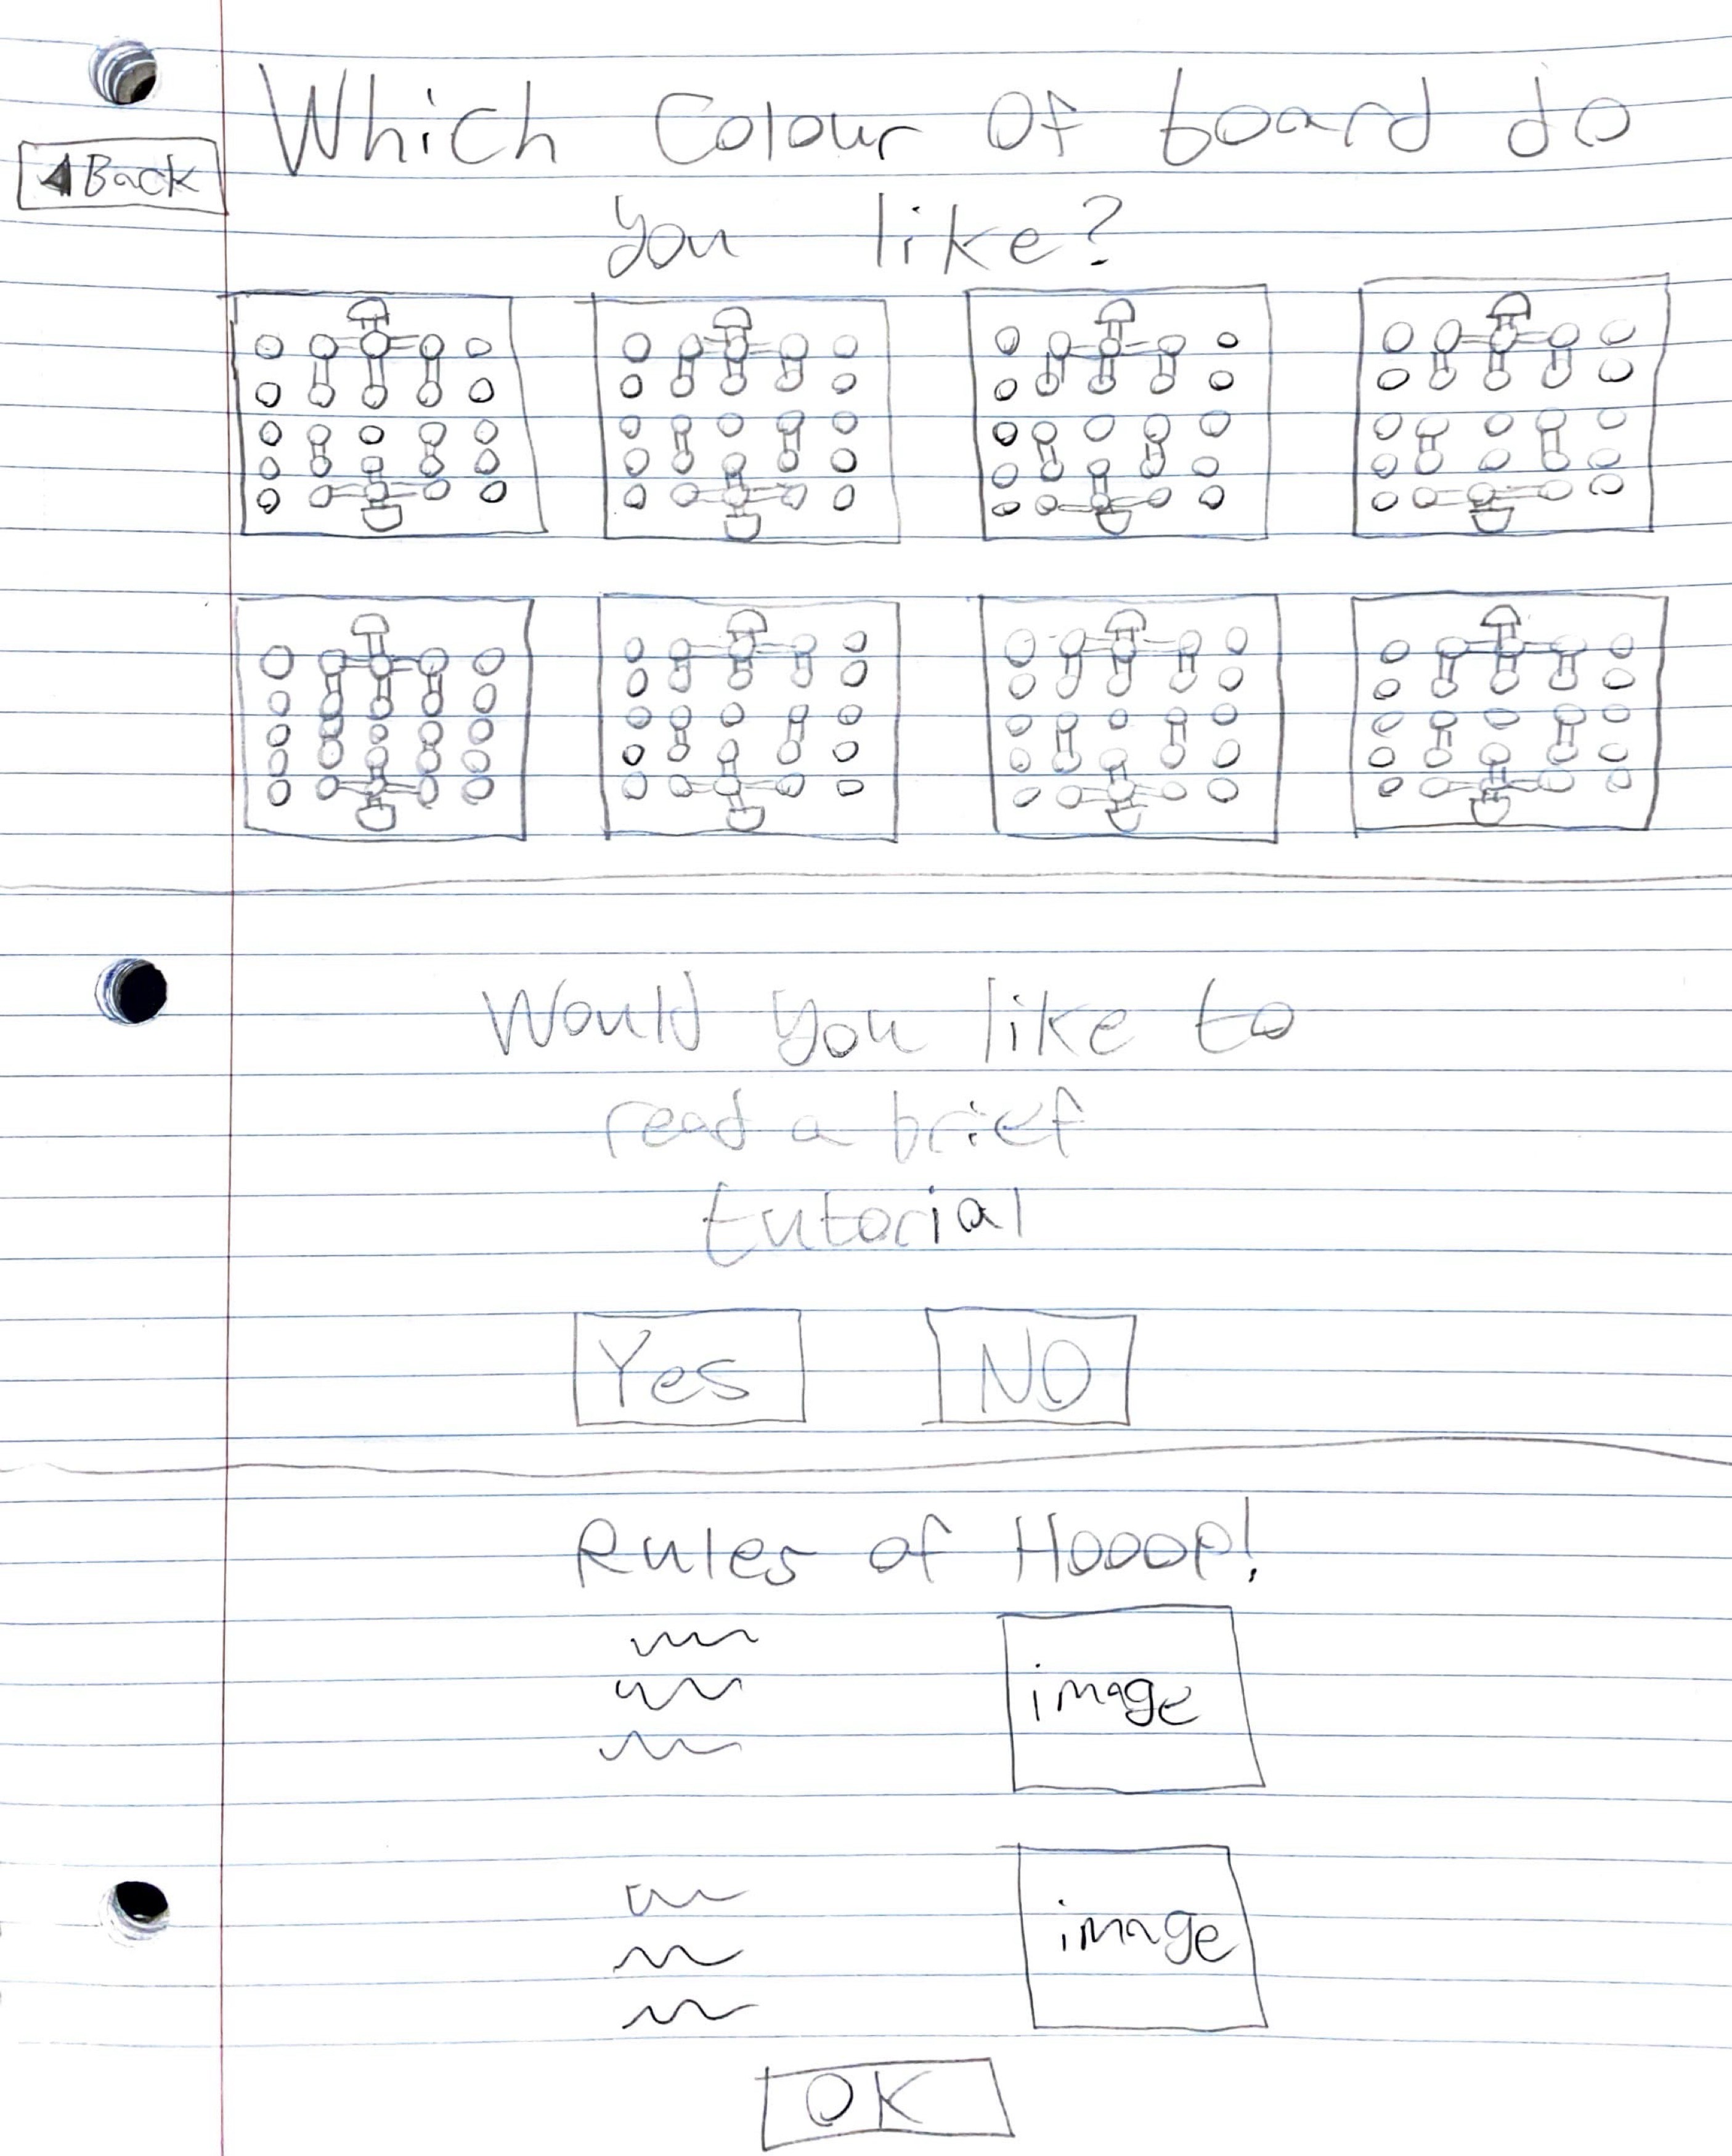 Which Colour Of board do
◀Back
you like?
Would you like to
read a brief
tutorial
Yes NO
Rules of Hooop!
image
image
OK